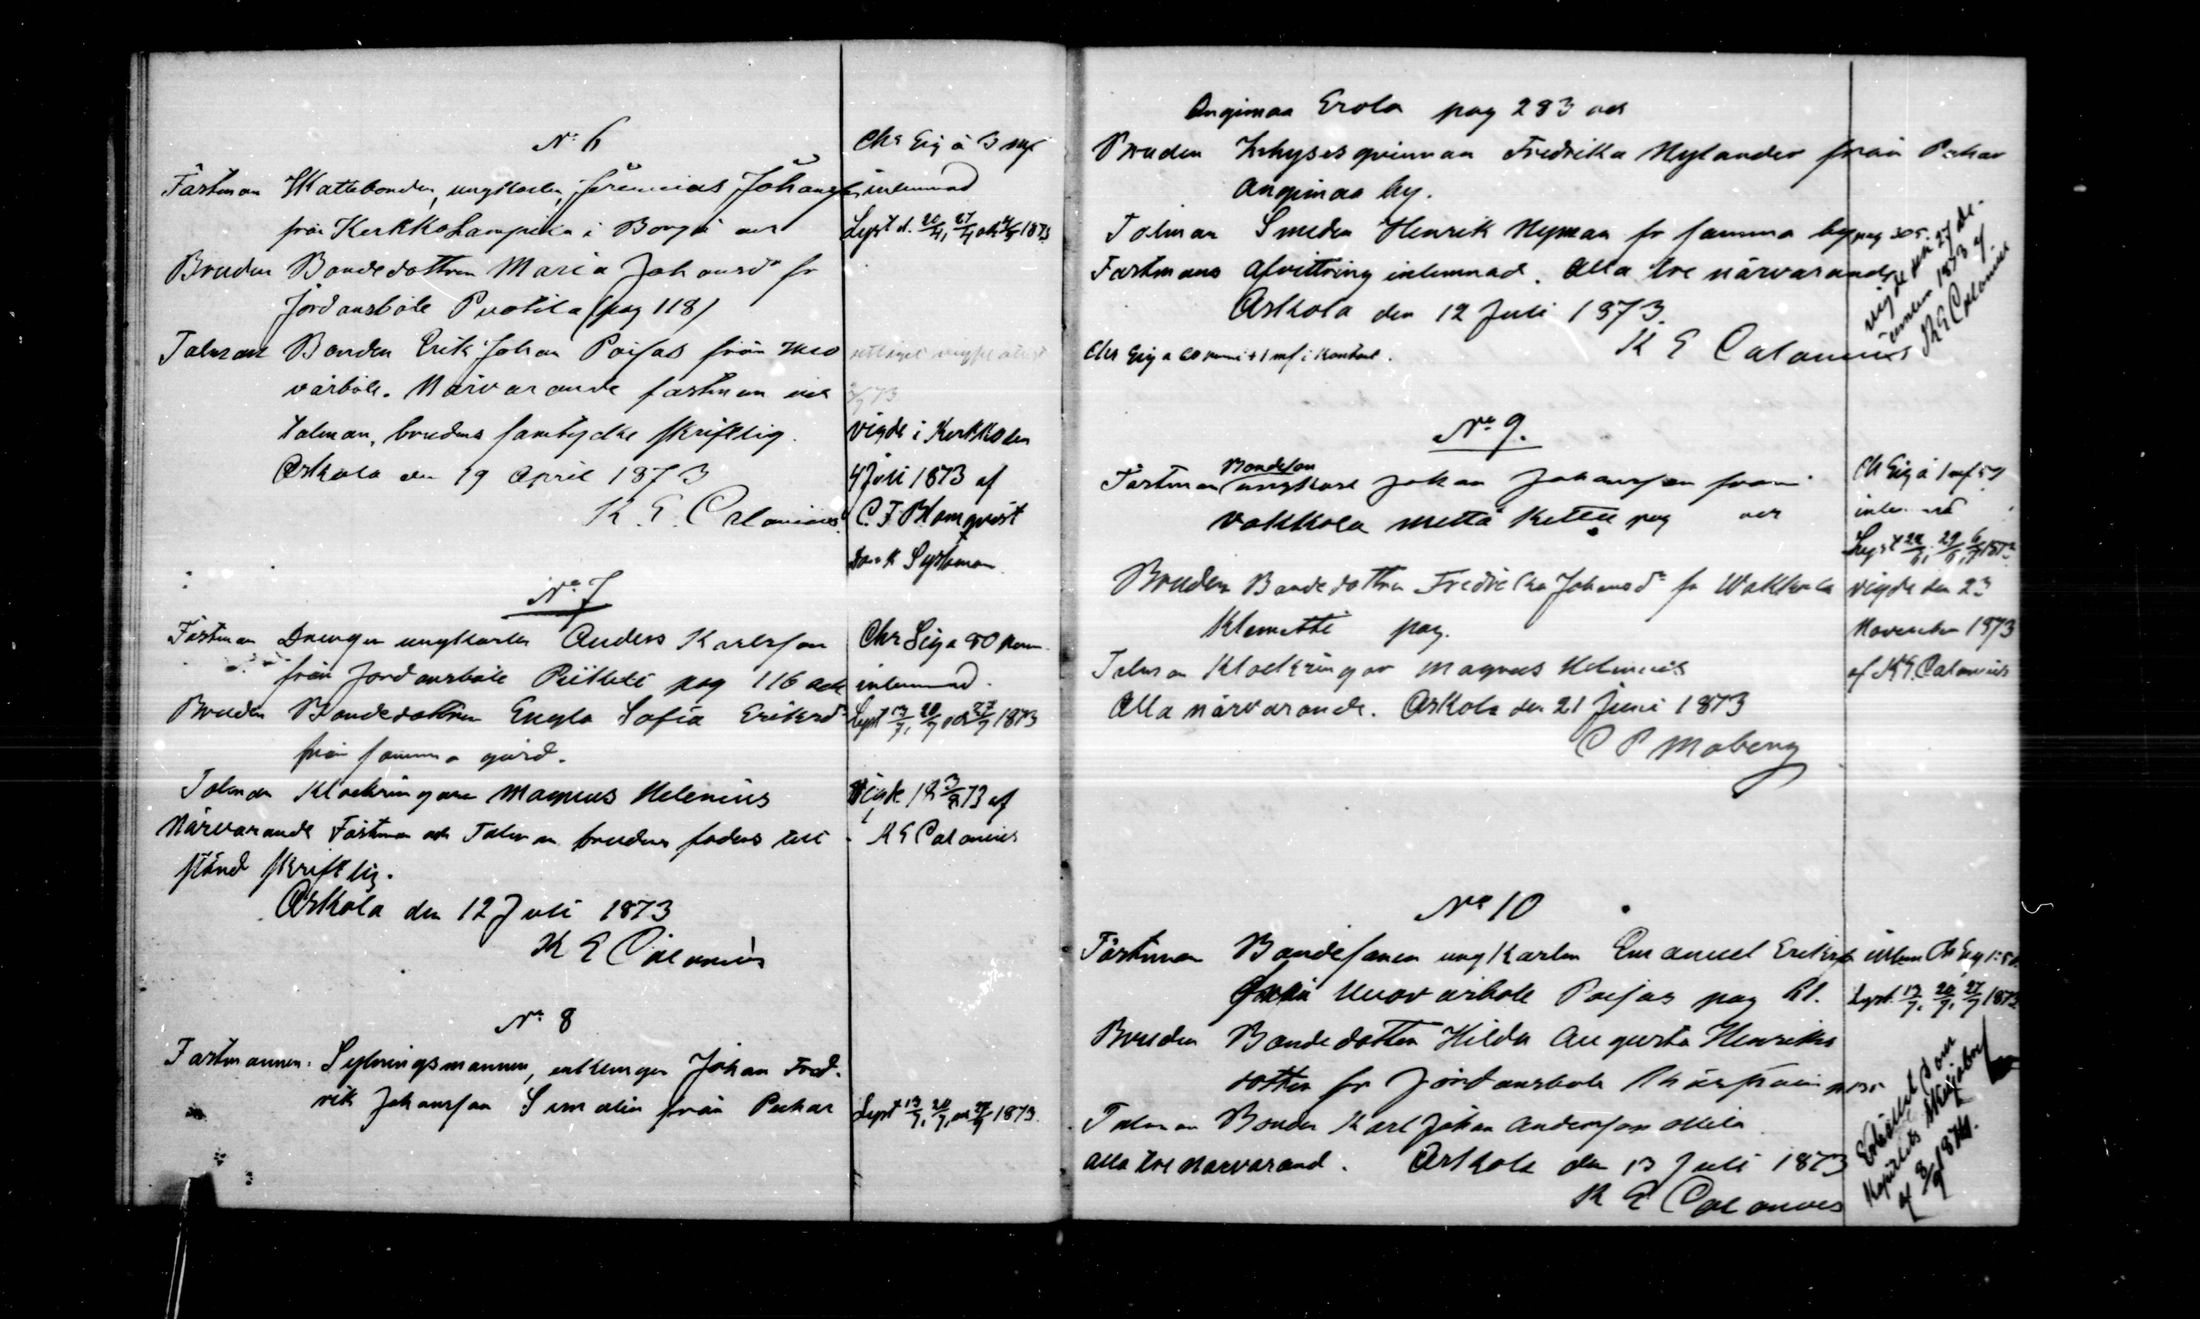 No 6
Fästman Skattebonden, ungkarlen, Jeremias Johansson
från Kerkko Lampila i Borgå och
Bruden Bondedottren Maria Johansdr fr
Jordansböle Puotila (pag 118)
Talman Bonden Erik Johan Poijas från Mo
närvarande fästman och
talman, brudens samtycke skriftlig.
Askola den 19 April 1873
K. E. Calonius
Chr Eig à 3 mk
inlemnad
Lyst d. 20/4, 27/4 och 4/5 1873
2/7 73
vigde i Kerkko den
4 Juli 1873 af
C. F. Blomqvist
No 7
Fästman Drengen ungkarlen Anders Karlsson
från Jordansböle Piiteli pag 116 och
Bruden Bondedottren Engla Sofia Eriksdr
från samma gård.
Talman Klockringaren Magnus Helenius
Närvarande Fästman och Talman brudens faders till
stånd skriftlig.
Askola den 12 Juli 1873
K E Calonius
Chr Eig a 80 penni
inlemnad.
Lyst 13/7, 20/7 och 27/7 1873
Vigde 18 3/8 73 af
K E Calonius
No 8
Fästmannen: Sytningsmannen, enklingen Johan Fred-
rik Johansson Sundlin från Pukar
Lyst 13/7, 20/7, och 27/7 1873.
Angimaa Erola pag 283 och
Bruden Inhyses qvinnan Fredrika Nylander från Pukar
Angimaa by.
Talman Smeden Henrik Nyman fr samma by pag 305
Fästmans afvittring inlemnad. Alla tre närvarande
Askola den 12 Juli 1873.
K E Calonius
Chr Eig a 60 penni + 1 mk i kontant.
vigde den 27 de-
cember 1873 af
K E Calonius
No 9.
Bondeson
Fästman ungkarl Johan Johansson från
Vakkola Mettä Ketten pag och
Bruden Bondedottren Fredrika Johansdr fr Wakkola
Klemetti pag.
Talman Klockringar Magnus Helenius
Alla närvarande. Askola den 21 Juni 1873
C P Moberg
Ch Eig à 1 mk 50
inlemnad
Lyst 22/6, 29/6, 6/7 1873
vigde den 23
November 1873
af K E. Calonius
No 10
Fästman Bondesonen ungkarlen Emanuel Eriksson
från Monvarböle Poijas pag 61.
Bruden Bondedottren Hilda Augusta Henriks
dotter fr Jordansböle
Talman Bonden Karl Johan Andersson Ollila
alla tre närvarand. Askola den 13 Juli 1873
K E Calonius
inlem Ch Eig 1:50
Lyst. 13/7, 20/7, 27/7 1873
Enl
af 8/9 1874.